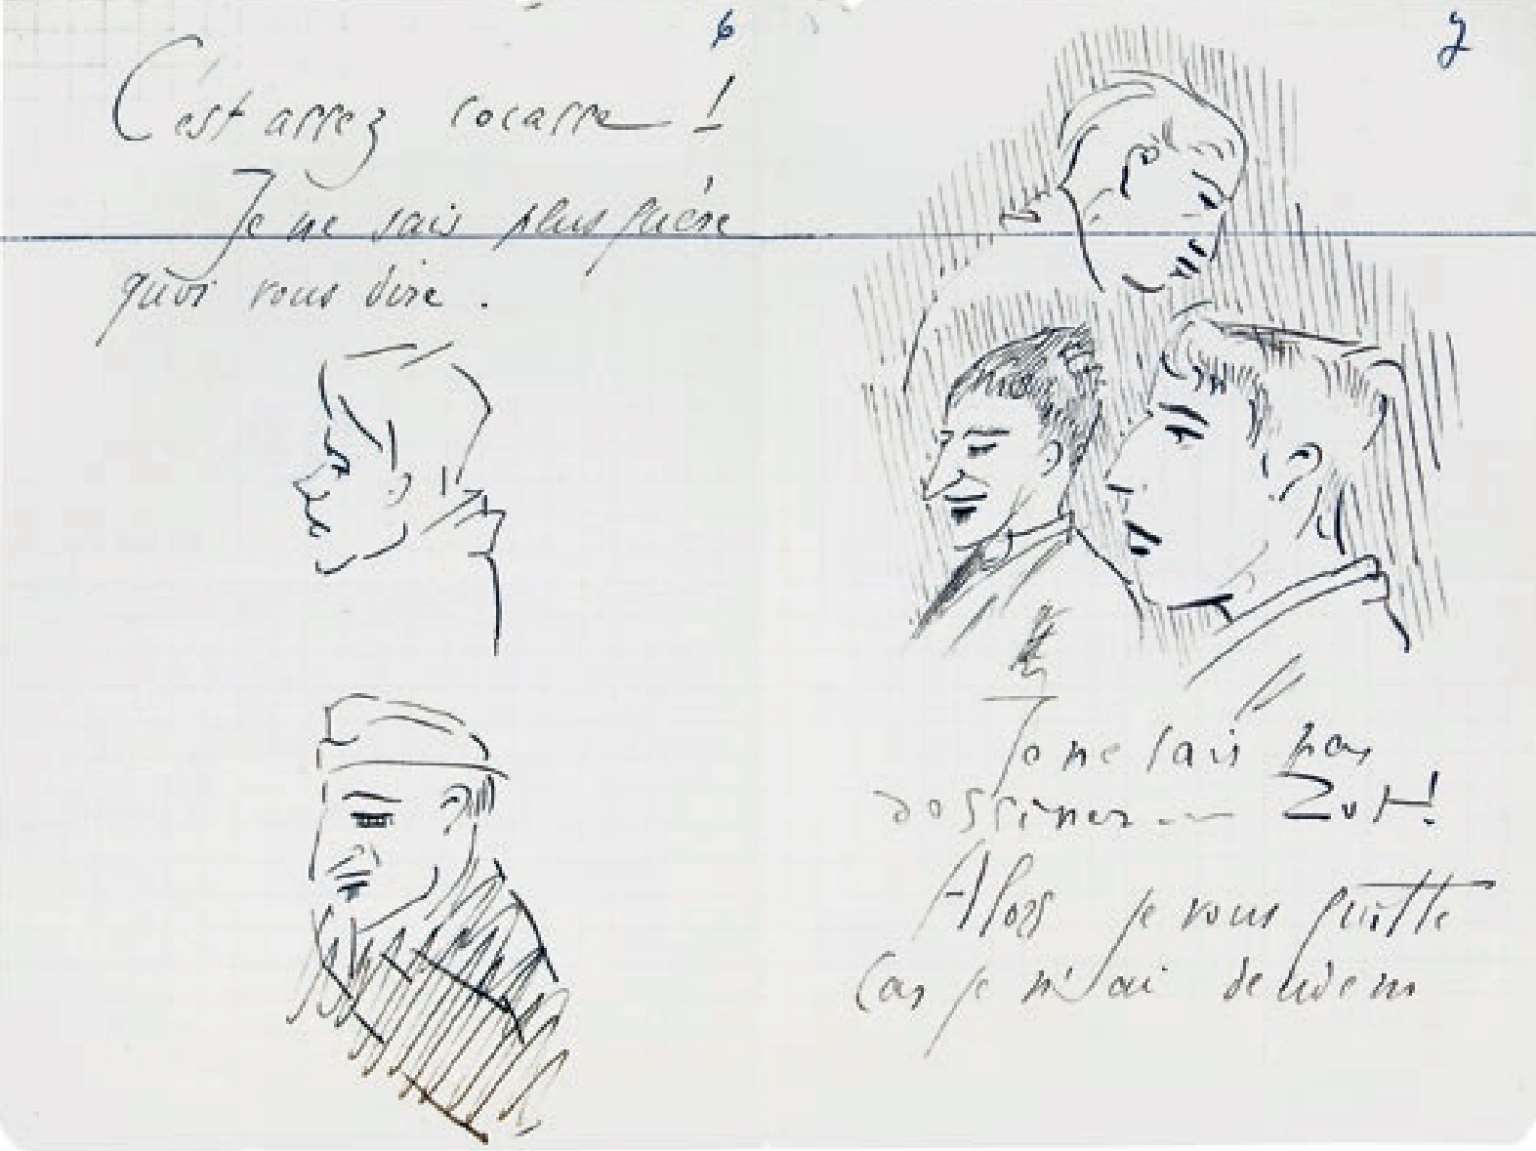 6
C'est assez cocasse !
Je ne sais plus guère
quoi vous dire.
7
Je ne sais pas
dessiner... Zut !
Alors je vous quitte
Car je n'ai